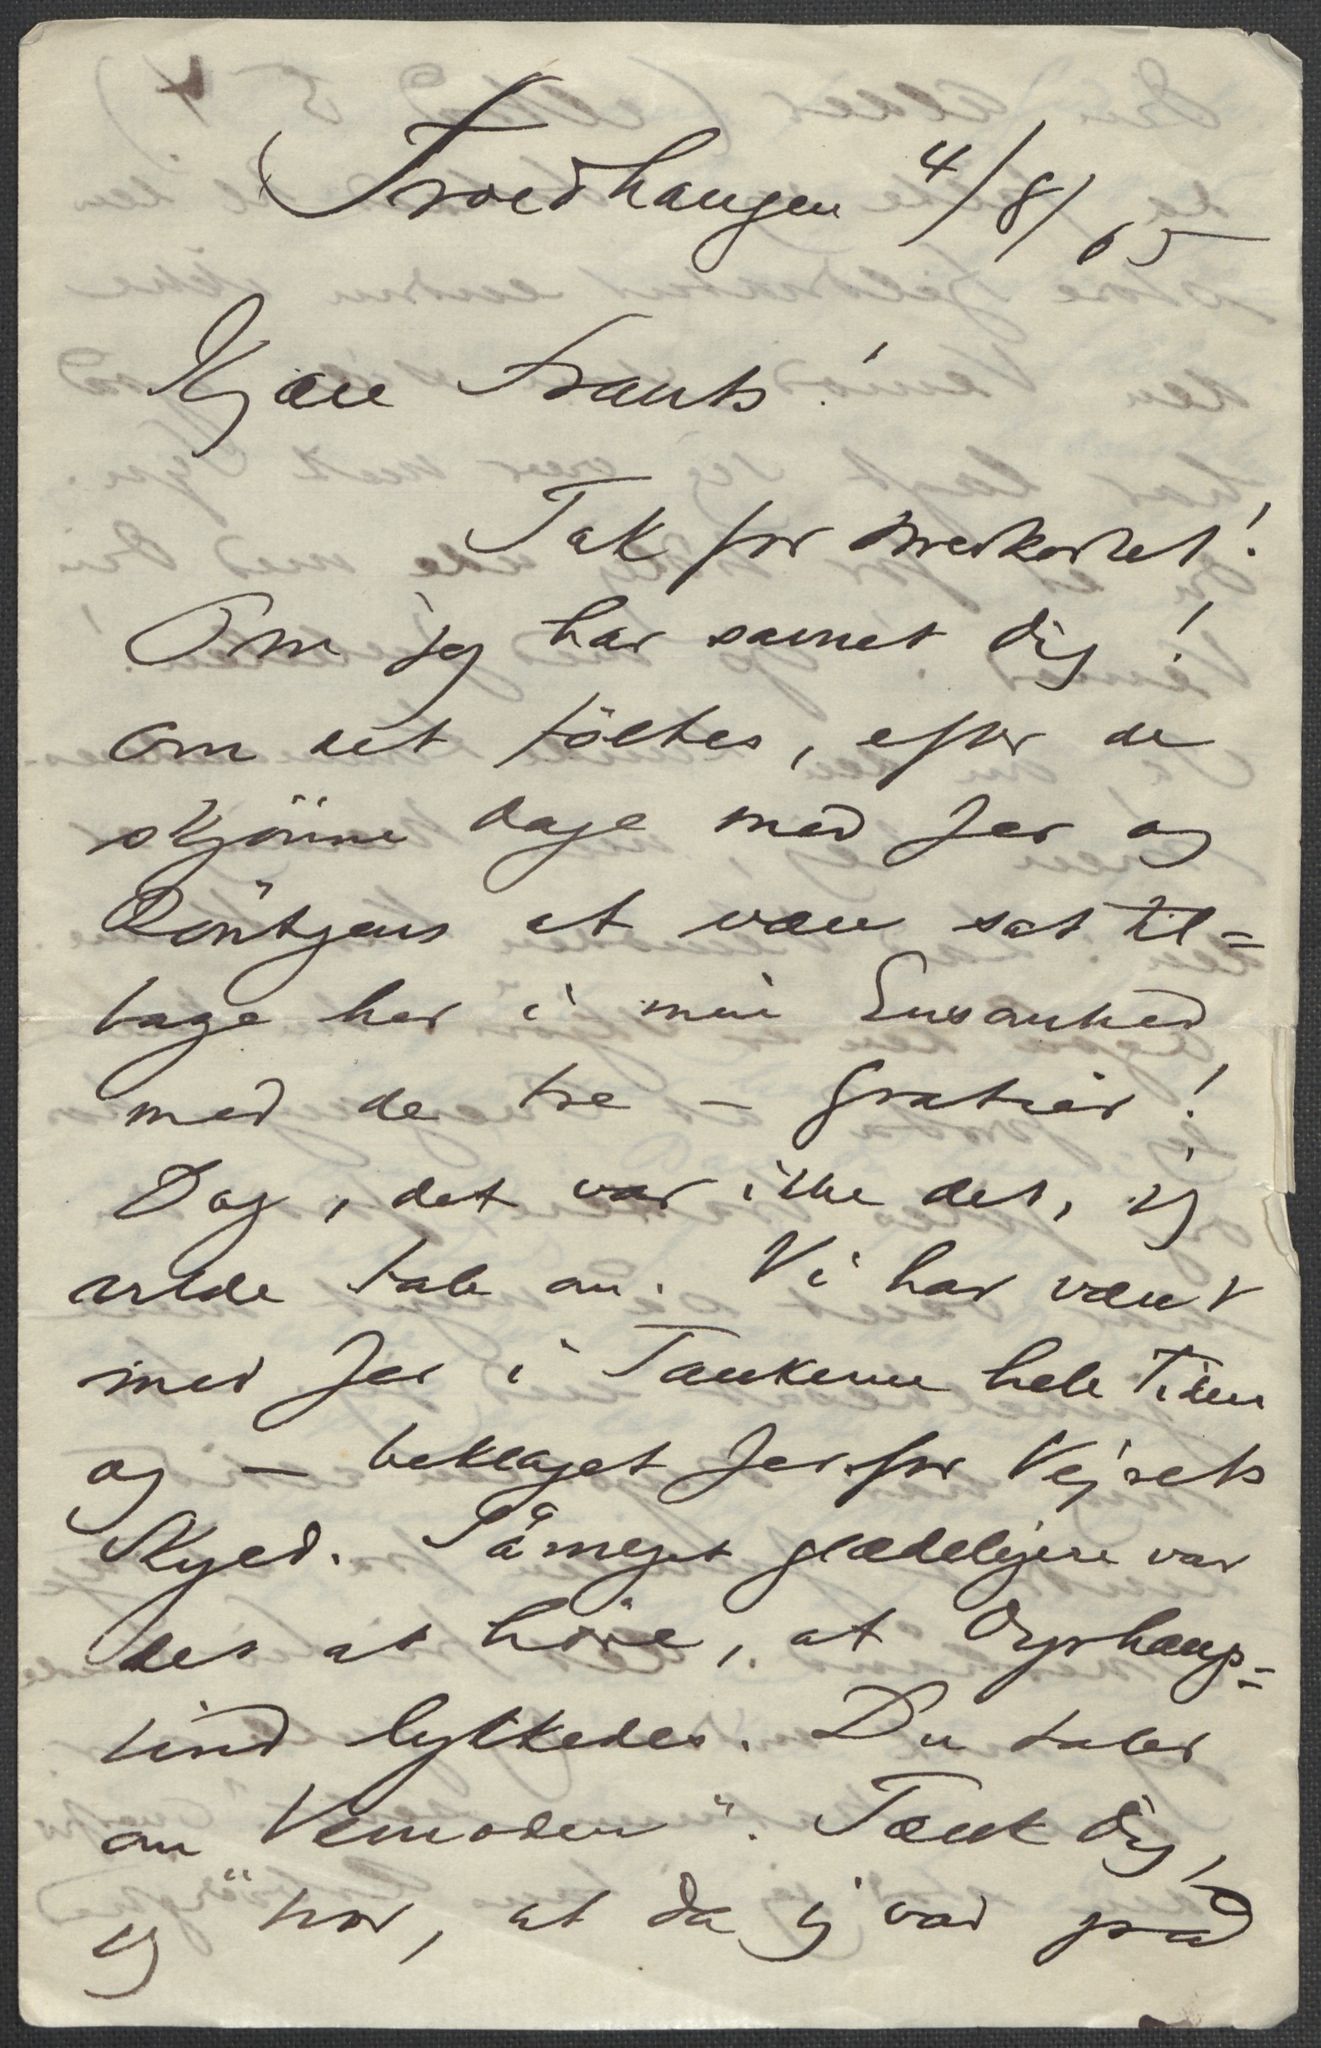 Troldhaugen 4/8/05
Kjære Frants!
Tak for Brevkortet!
Om jeg har savnet Dig!
Om det föltes, efter de
skjönne Dage med Jer og
Röntgens at være sat til=
bage her i min Ensomhed
med de tre – Gratier!
Dog, det var ikke det, jeg
vilde tale om. Vi har været
med Jer i Tankerne hele Tiden
og – beklaget Jer for Vejrets
Skyld. Såmeget glædeligere var
det at höre, at Dyrhaugs=
tind lykkedes. Du taler
om "Vemoden". Tænk Dig,
jeg tror, at da jeg var på